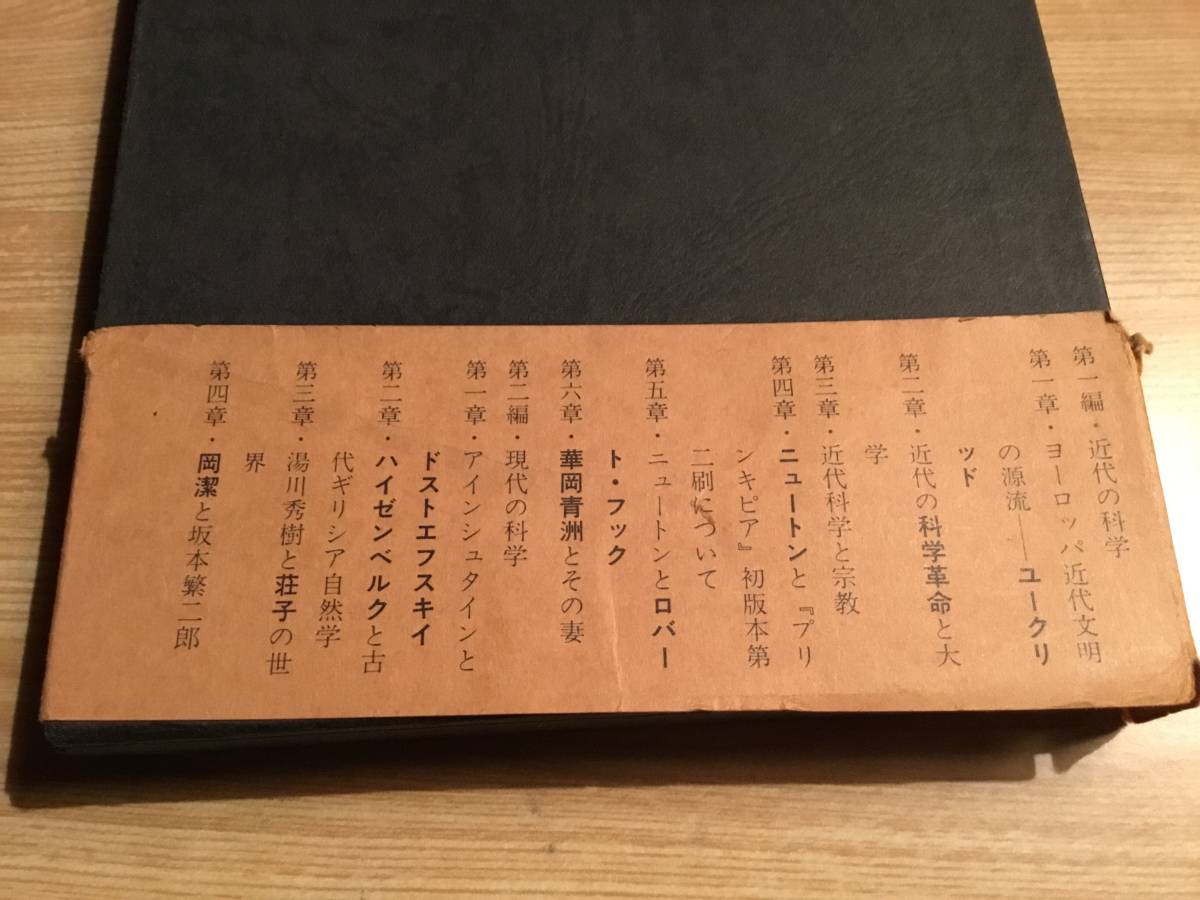 第一編・近代の科学
第一章・ヨーロッパ近代文明
の源流――ユークリ
ッド
第二章・近代の科学革命と大
学
第三章・近代科学と宗教
第四章・ニュートンと『プリ
ンキピア』初版本第
二刷について
第五章・ニュートンとロバー
ト・フック
第六章・華岡青洲とその妻
第二編・現代の科学
第一章・アインシュタインと
ドストエフスキイ
第二章・ハイゼンベルクと古
代ギリシア自然学
第三章・湯川秀樹と荘子の世
界
第四章・岡潔と坂本繁二郎